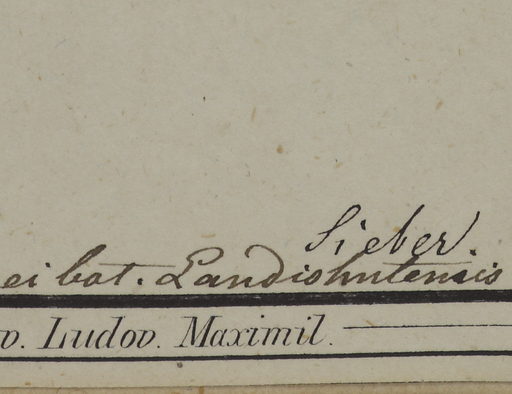 Sieber.
ei bot. Landishutensis
v. Ludov. Maximil.